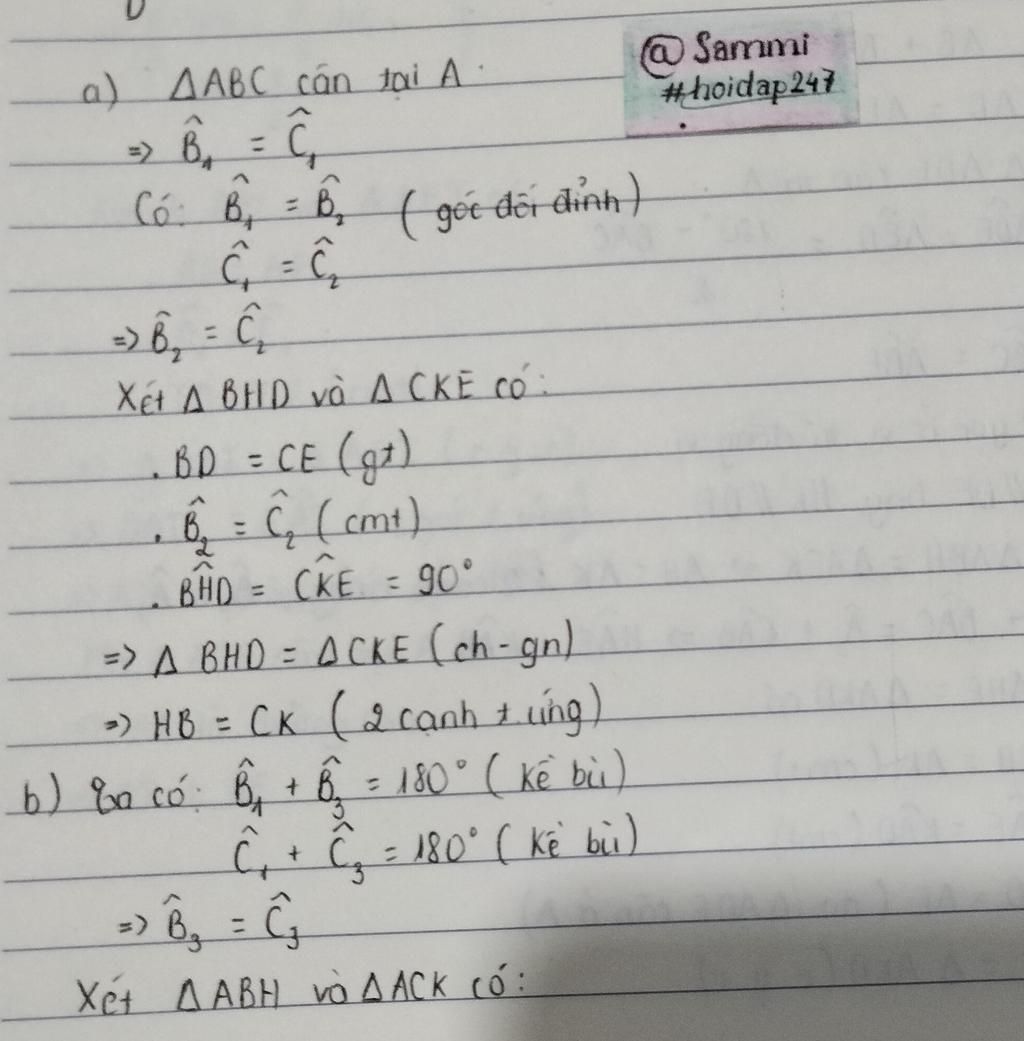 @ Sammi
#hoidap247
a) ΔABC cân tại A.
=> B̂₁ = Ĉ₁
Có: B̂₁ = B̂₂ (góc đối đỉnh)
Ĉ₁ = Ĉ₂
=> B̂₂ = Ĉ₂
Xét Δ BHD và Δ CKE có:
. BD = CE (gt)
. B̂₂ = Ĉ₂ (cmt)
. BĤD = CK̂E = 90°
=> Δ BHD = Δ CKE (ch - gn)
=> HB = CK (2 cạnh t. ứng)
b) Ta có: B̂₁ + B̂₃ = 180° (kề bù)
Ĉ₁ + Ĉ₃ = 180° (kề bù)
=> B̂₃ = Ĉ₃
Xét ΔABH và ΔACK có: